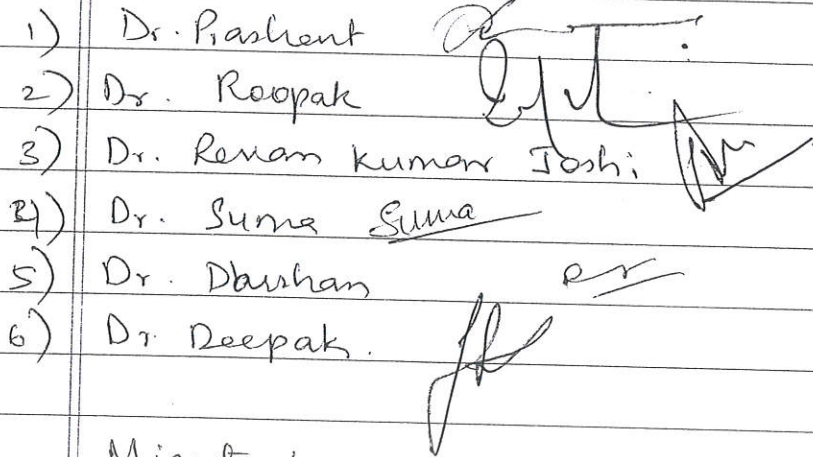 1) Dr. Prashant
2) Dr. Roopak
3) Dr. Revan Kumar Joshi
4) Dr. Suma Suma
5) Dr. Darshan
6) Dr. Deepak.